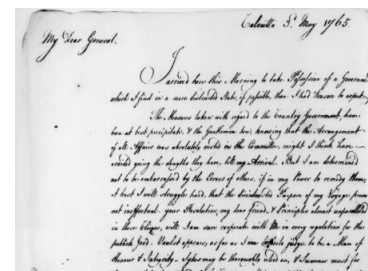 Calcutta 3d. May 1765
My Dear General.
I arrived here this Morning to take Possession of a Government
which I find in a more distracted State, if possible, than I had Reason to expect.
The Measures taken with regard to the Country Government, have
been at best precipitate, & the Gentlemen here, knowing that the Arrangement
of all Affairs was absolutely vested in the Committee, might I think have
avoided going the lengths they have, till my Arrival. But I am determined
not to be embarrassed by the Errors of others, if in my Power to remedy them,
at least I will struggle hard, that the disinterested Purpose of my Voyage prove
not ineffectual. Your Resolution, my dear friend, & Principles almost unparalleled
in these Climes, will I am sure cooperate with Me in every regulation for the
publick good. Verelst appears, as far as I can hitherto judge, to be a Man of
Honour & Integrity - Sykes may be thoroughly relied on, & Sumner must for